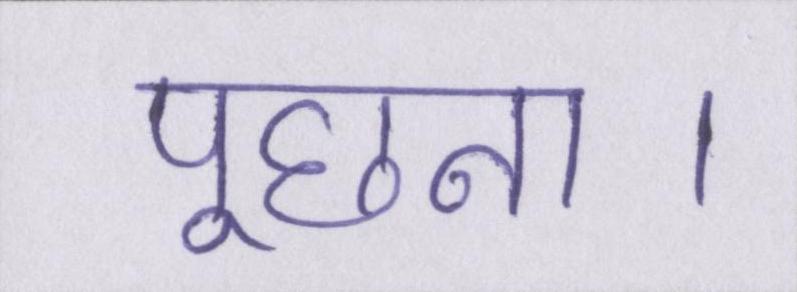 पूछना।